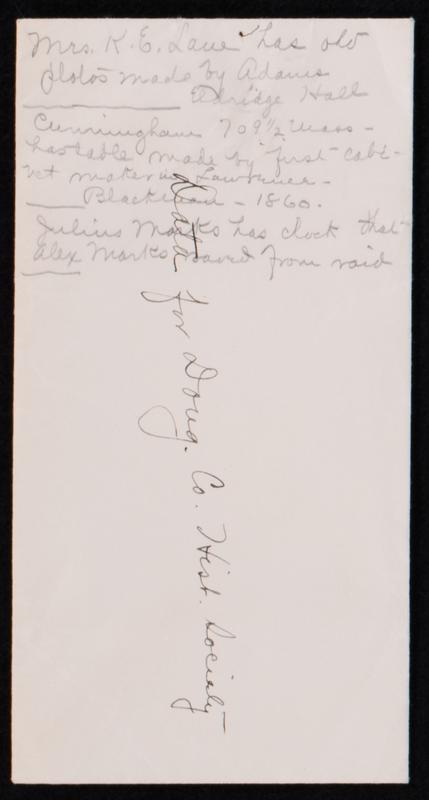 Mrs. K. E. Laue has old
photos made by Adams
Eldridge Hall
Cunningham 709½ Mass -
has table made by first cabi-
net maker in Lawrence -
Blackman - 1860.
Julius Marks has clock that
Alex Marks saved from raid
Data for Doug. Co. Hist. Society